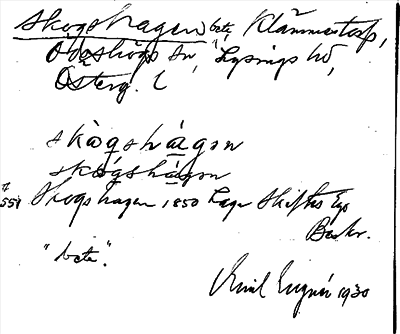 Skogshagen, bete, Klämmestorp,
Ödeshögs sn, Lysings hd,
Österg. l
skògshágen
skógshàgen
Skogshagen 1850 Laga Skiftes Ego
Beskr.
"bete".
Emil 1930